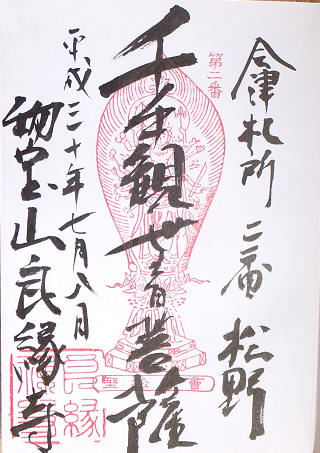 会津札所 二番 松野
第二番
千手観世音菩薩
平成三十年七月八日
物宝山良縁寺
良縁